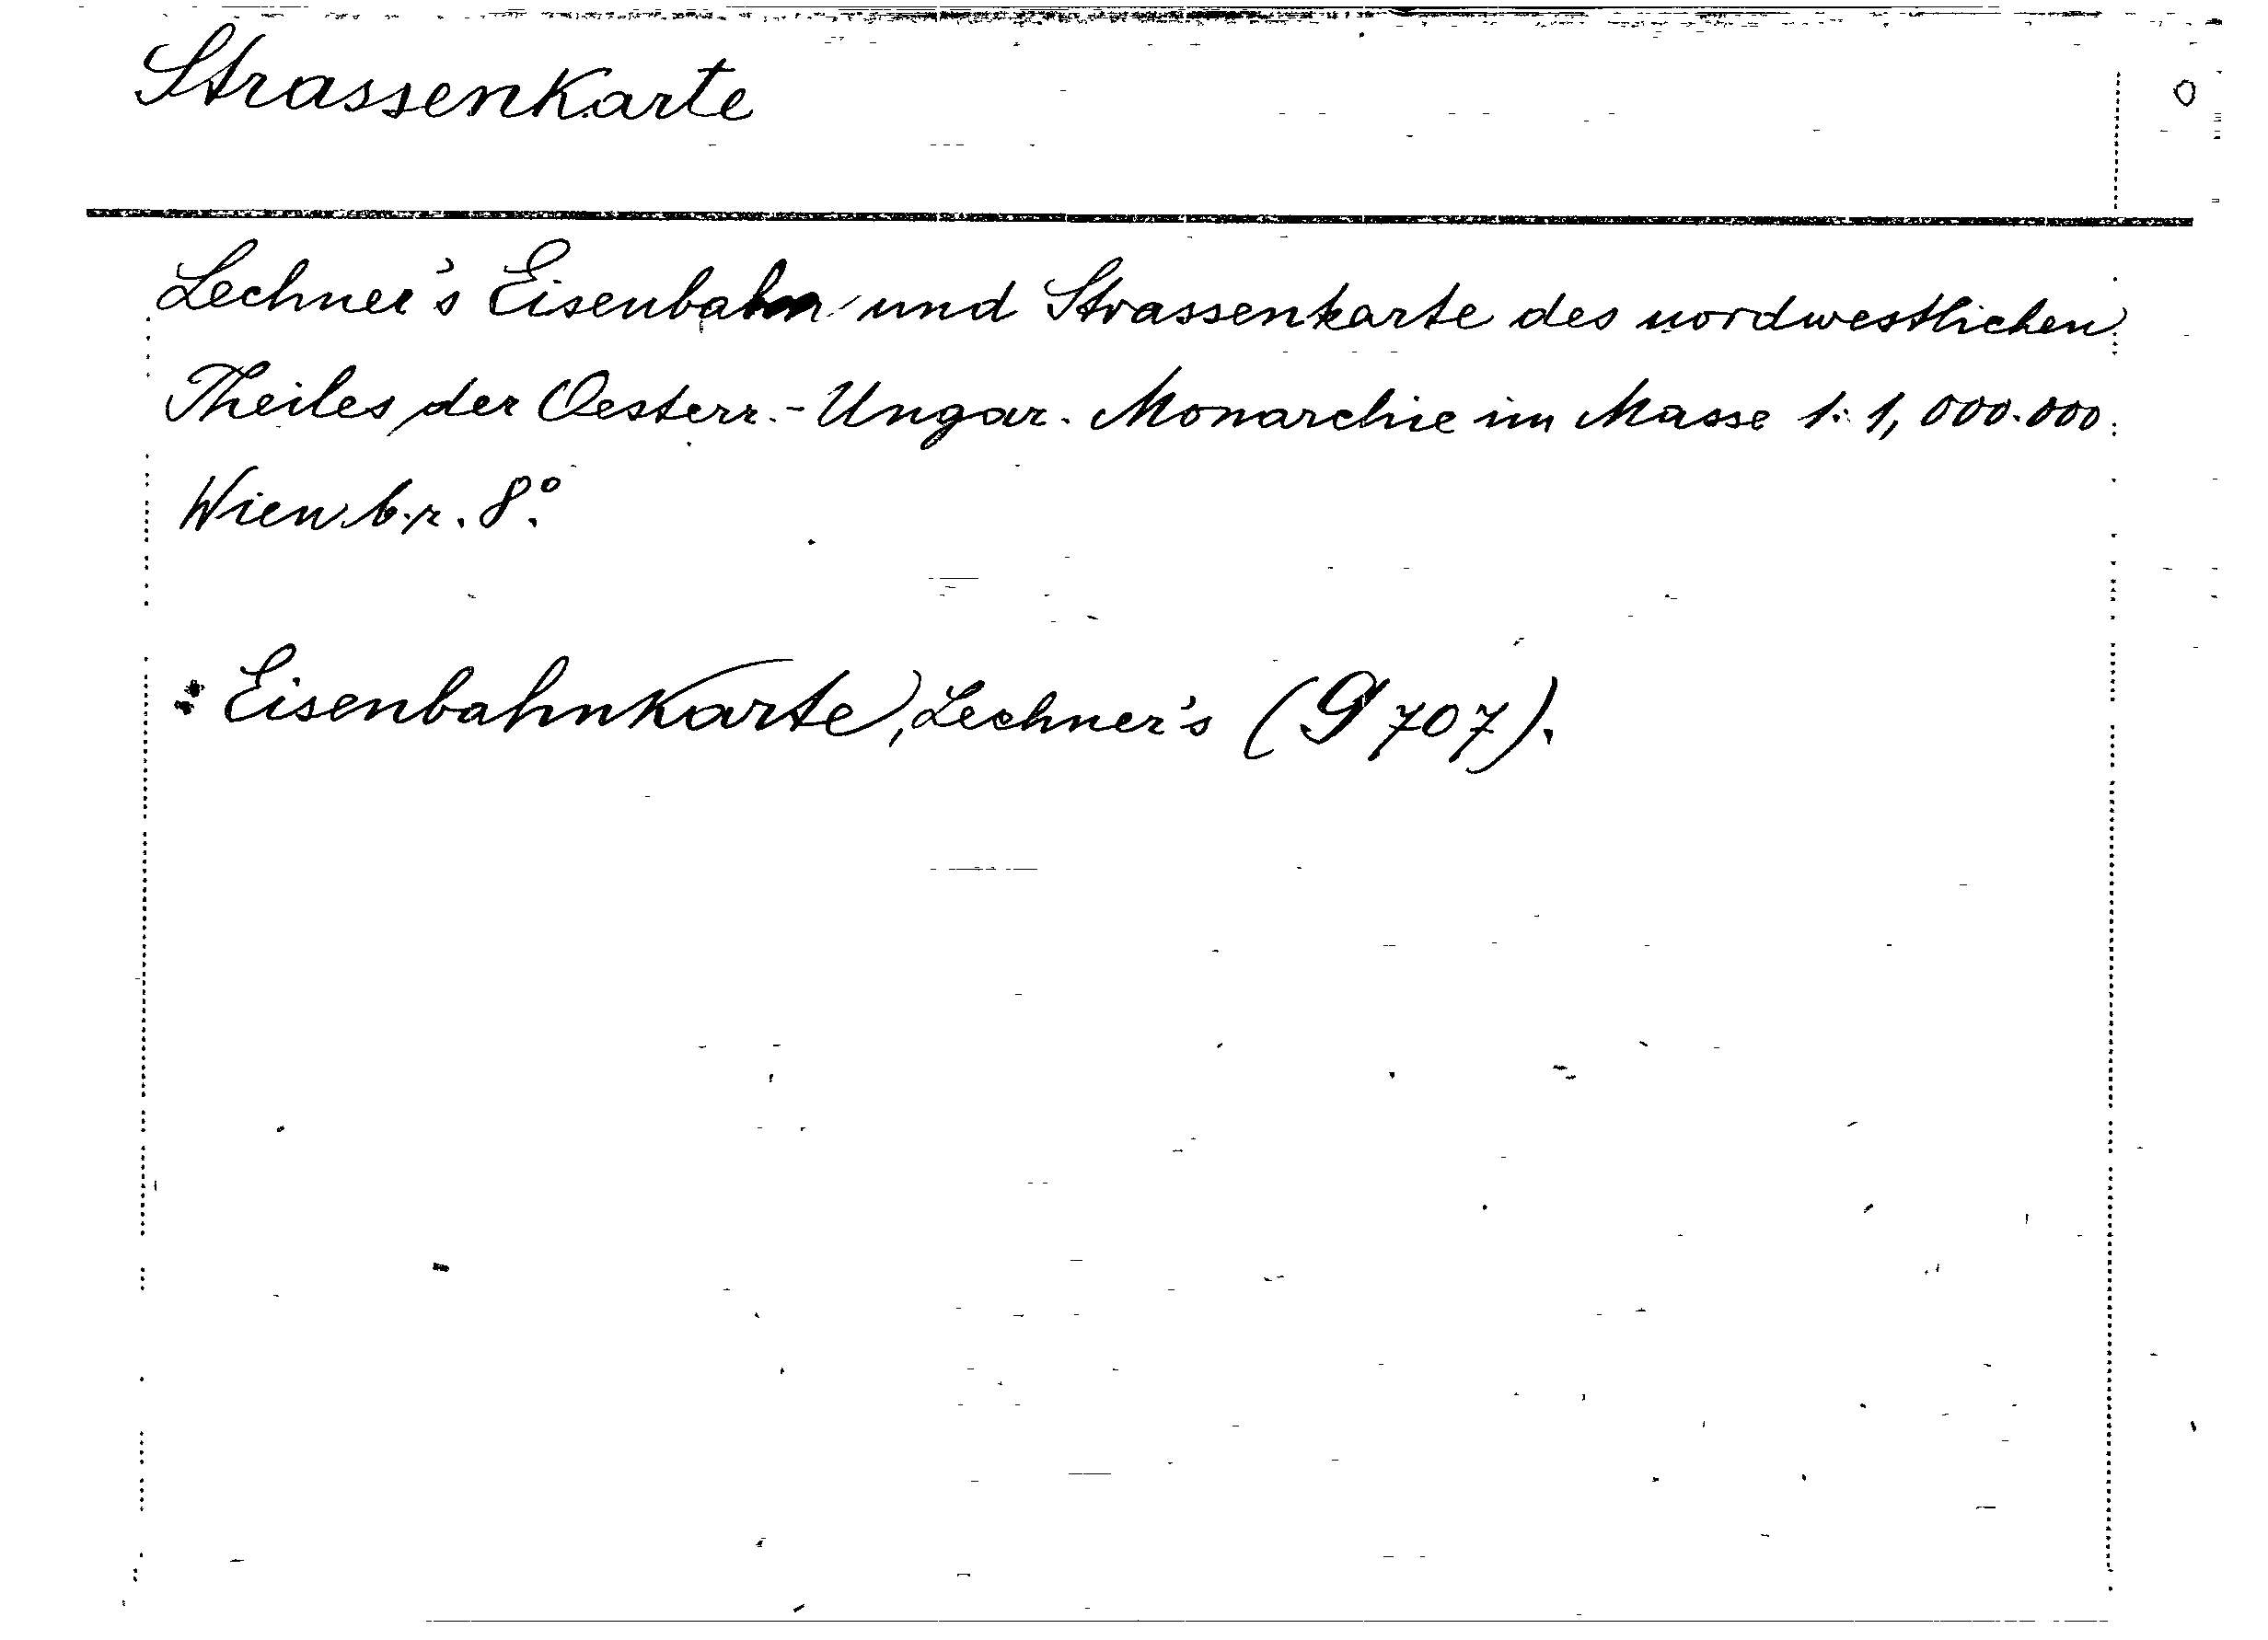 Strassenkarte
Lechner's Eisenbahn- und Strassenkarte des nordwestlichen
Theiles der Oesterr.-Ungar. Monarchie im Masse 1:1,000.000.
Wien b.r. 8°.
: Eisenbahnkarte, Lechner's (G 707).